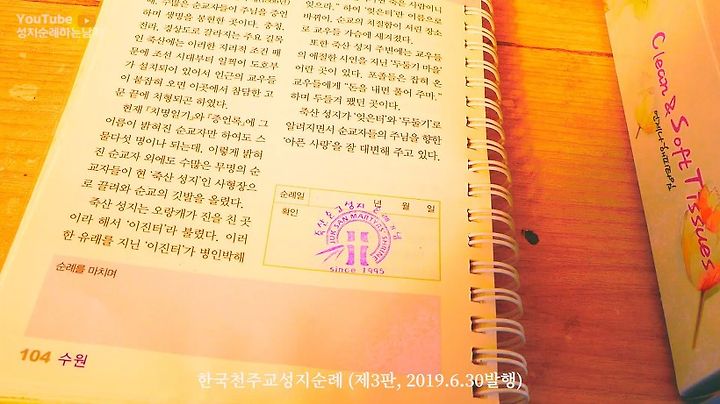 YouTube
성지순례하는남자
에, 수많은 순교자들이 주님을 증언
하며 생명을 봉헌한 곳이다. 충청,
전라, 경상도로 갈라지는 주요 길목
인 죽산에는 이러한 지리적 조건 때
문에 조선 시대부터 일찍이 도호부
가 설치되어 있어서 인근의 교우들
이 붙잡혀 오면 이곳에서 참담한 고
문 끝에 처형되곤 하였다.
현재 『치명일기』와 『증언록』에 그
이름이 밝혀진 순교자만 하여도 스
물다섯 명이나 되는데, 이렇게 밝혀
진 순교자 외에도 수많은 무명의 순
교자들이 현 ‘죽산 성지’인 사형장으
로 끌려와 순교의 깃발을 올렸다.
죽산 성지는 오랑캐가 진을 친 곳
이라 해서 ‘이진터’라 불렸다. 이러
한 유래를 지닌 ‘이진터’가 병인박해
라.” 하여 ‘잊은터’란 이름으로
바뀌어, 순교의 치절함이 서린 장소
로 교우들 가슴에 새겨졌다.
또한 죽산 성지 주변에는 교우들
의 애절한 사연을 지닌 ‘두둘기 마을’
이란 곳이 있다. 포졸들은 잡혀 온
교우들에게 “돈을 내면 풀어 주마.”
하며 두들겨 팼던 곳이다.
죽산 성지가 ‘잊은터’와 ‘두둘기’로
알려지면서 순교자들의 주님을 향한
‘아픈 사랑’을 잘 대변해 주고 있다.
순례일 년 월 일
확인
죽산순교성지 순례기념
JUK SAN MARTYRS' SHRINE
since 1995
순례를 마치며
104 수원
Clean & Soft Tissues
한국천주교성지순례 (제3판, 2019.6.30발행)